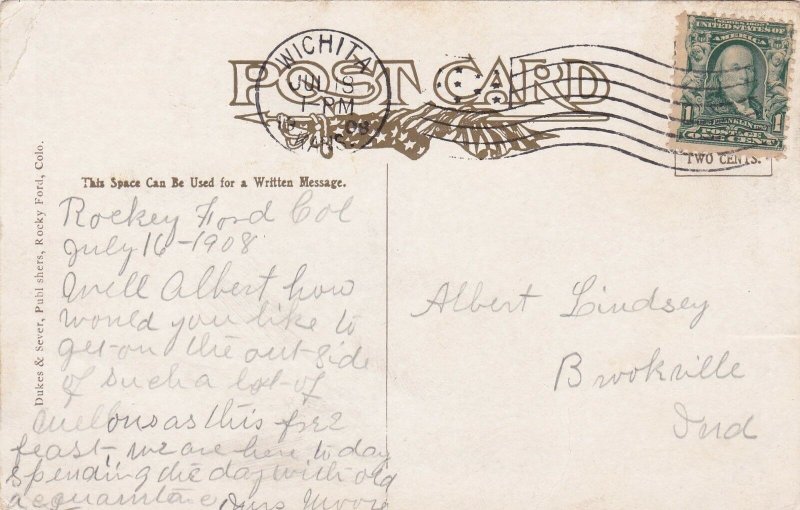 POST CARD
WICHITA
JUL 18
1-PM
1908
KANS.
UNITED STATES OF
AMERICA
1 1
POSTAGE
ONE CENT
TWO CENTS.
This Space Can Be Used for a Written Message.
Dukes & Sever, Publishers, Rocky Ford, Colo.
Rockey Ford Col
July 16-1908
Well Albert how
would you like to
get on the out-side
of such a lot of
mellons as this free
feast, we are here to day
spending the day with old
acquaintance Mrs Moore
Albert Lindsey
Brookville
Ind